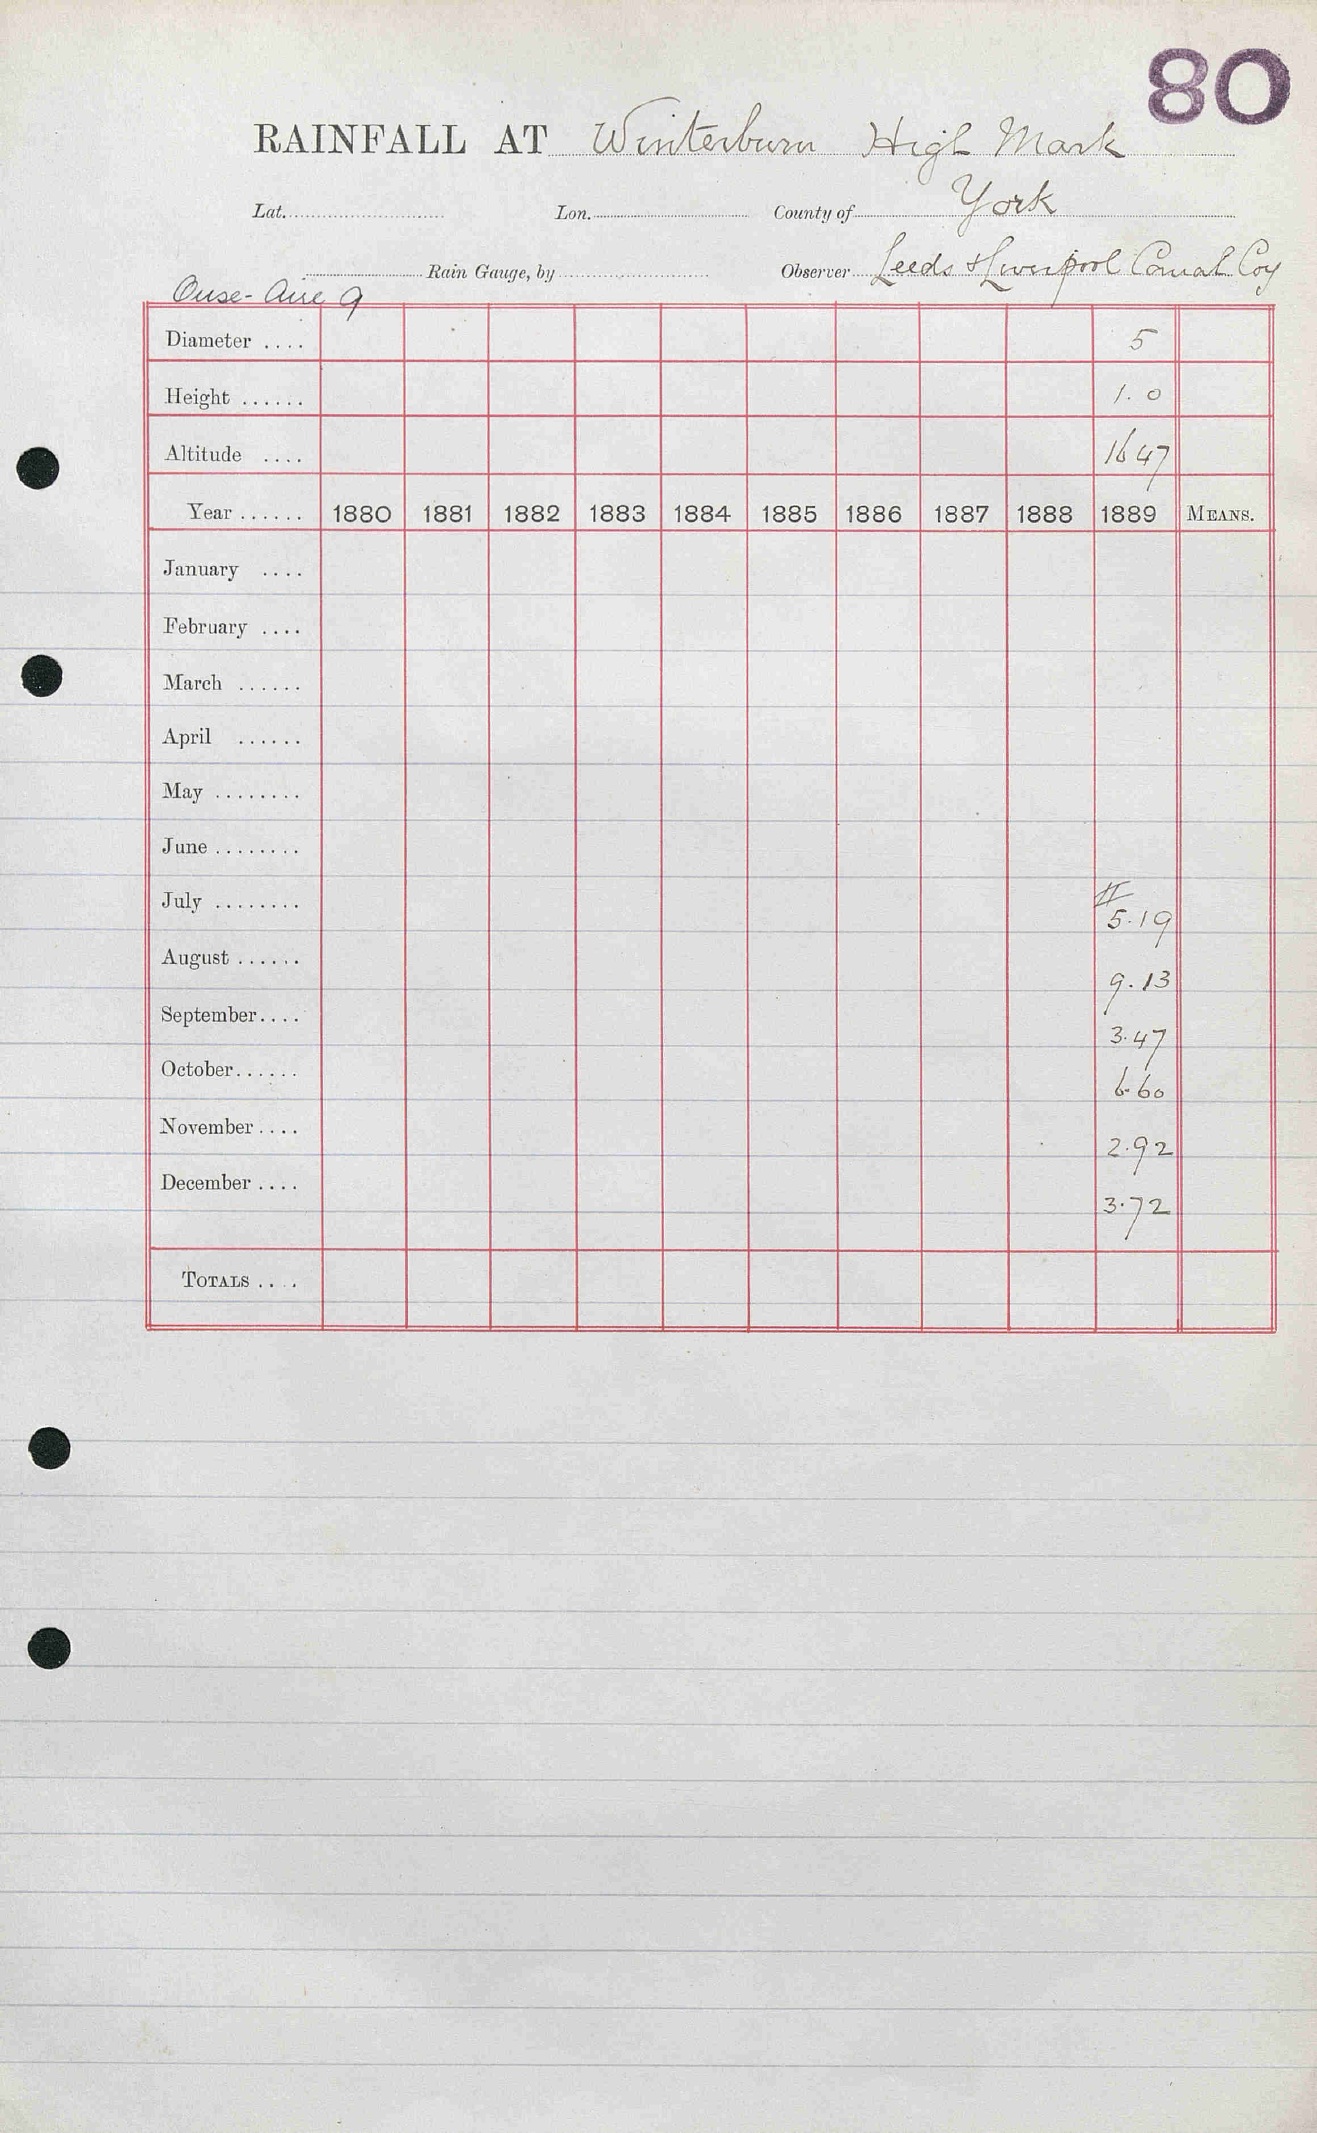 80
RAINFALL AT Winterburn High Mark
Lat. Lon. County of York
Rain Gauge, by Observer Leeds & Liverpool Canal Coy
Ouse-Aire 9
Diameter .... 5
Height ...... 1.0
Altitude .... 1647
Year ...... 1880 1881 1882 1883 1884 1885 1886 1887 1888 1889 MEANS.
January ....
February ....
March ......
April ......
May ........
June ........
July ........ # 5.19
August ...... 9.13
September.... 3.47
October...... 6.60
November.... 2.92
December .... 3.72
TOTALS ....